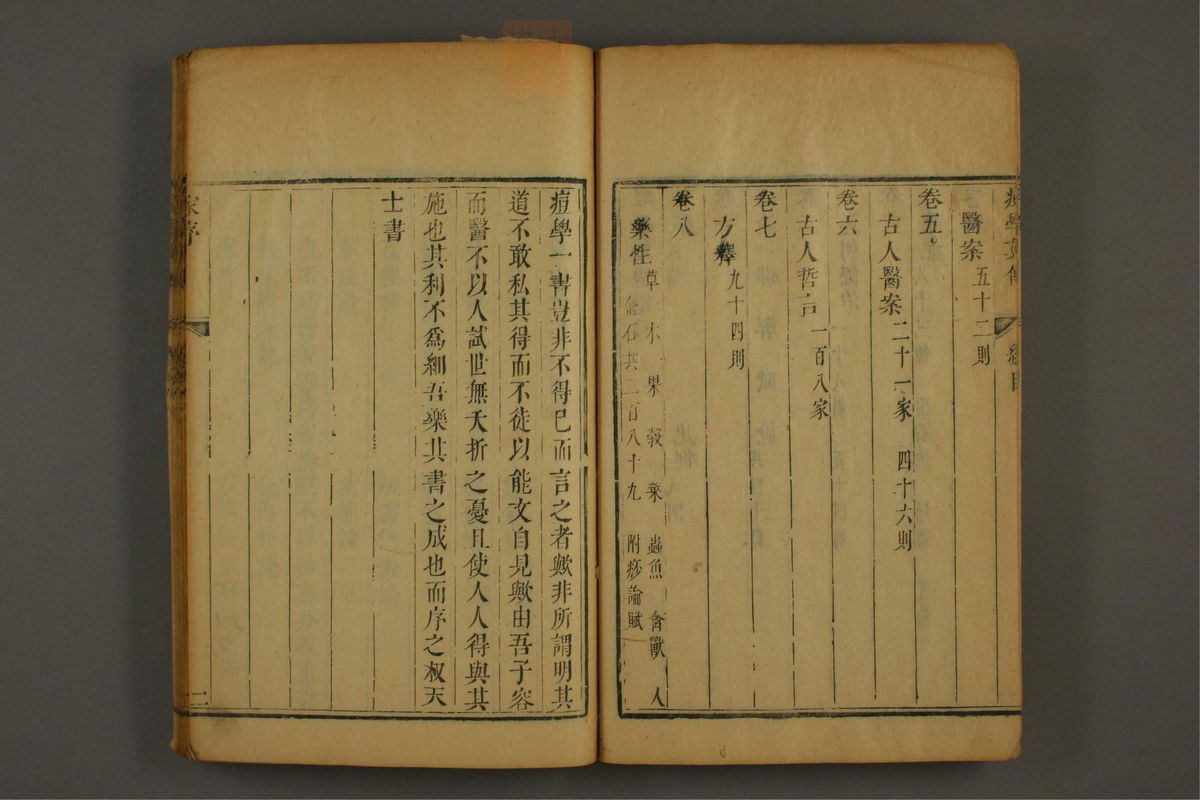 醫案 五十二則
卷五
古人醫案 二十一家 四十六則
卷六
古人哲言 一百八家
卷七
方釋 九十四則
卷八
藥性 草 木 果 穀 菜 蟲魚 禽獸 人
金石共二百八十九 附痧論賦
痘學一書豈非不得已而言之者歟非所謂明其
道不敢私其得而不徒以能文自見歟由吾子容
而醫不以人試世無夭折之憂且使人人得與其
施也其利不爲細吾樂其書之成也而序之叔天
士書
二